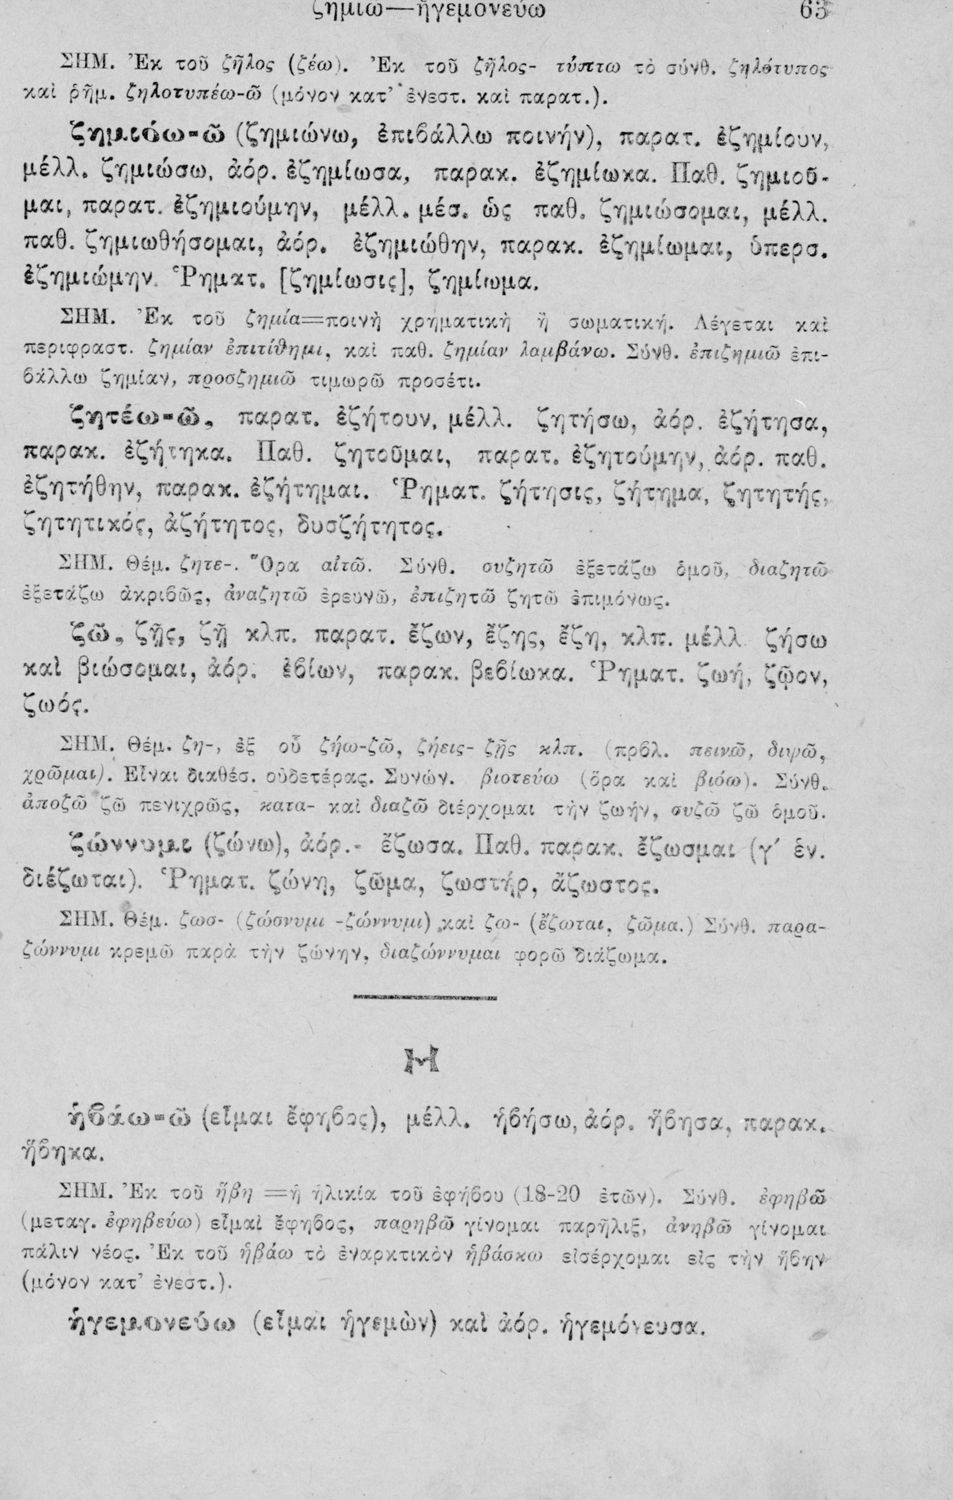 ζημιῶ—ἡγεμονεύω 63
ΣΗΜ. Ἐκ τοῦ ζῆλος (ζέω). Ἐκ τοῦ ζῆλος- τύπτω τὸ σύνθ. ζηλότυπος
καὶ ῥῆμ. ζηλοτυπέω-ῶ (μόνον κατ’ ἐνεστ. καὶ παρατ.).
ζημιόω-ῶ (ζημιώνω, ἐπιβάλλω ποινήν), παρατ. ἐζημίουν,
μέλλ. ζημιώσω, ἀόρ. ἐζημίωσα, παρακ. ἐζημίωκα. Παθ. ζημιοῦ-
μαι, παρατ. ἐζημιούμην, μέλλ. μέσ. ὡς παθ. ζημιώσομαι, μέλλ.
παθ. ζημιωθήσομαι, ἀόρ. ἐζημιώθην, παρακ. ἐζημίωμαι, ὑπερσ.
ἐζημιώμην. Ῥηματ. [ζημίωσις], ζημίωμα.
ΣΗΜ. Ἐκ τοῦ ζημία=ποινὴ χρηματικὴ ἢ σωματική. Λέγεται καὶ
περιφραστ. ζημίαν ἐπιτίθημι, καὶ παθ. ζημίαν λαμβάνω. Σύνθ. ἐπιζημιῶ ἐπι-
βάλλω ζημίαν, προσζημιῶ τιμωρῶ προσέτι.
ζητέω-ῶ, παρατ. ἐζήτουν, μέλλ. ζητήσω, ἀόρ. ἐζήτησα,
παρακ. ἐζήτηκα. Παθ. ζητοῦμαι, παρατ. ἐζητούμην, ἀόρ. παθ.
ἐζητήθην, παρακ. ἐζήτημαι. Ῥηματ. ζήτησις, ζήτημα, ζητητής,
ζητητικός, ἀζήτητος, δυσζήτητος.
ΣΗΜ. Θέμ. ζητε-. Ὅρα αἰτῶ. Σύνθ. συζητῶ ἐξετάζω ὁμοῦ, διαζητῶ
ἐξετάζω ἀκριβῶς, ἀναζητῶ ἐρευνῶ, ἐπιζητῶ ζητῶ ἐπιμόνως.
ζῶ, ζῇς, ζῇ κλπ. παρατ. ἔζων, ἔζης, ἔζη, κλπ. μέλλ. ζήσω
καὶ βιώσομαι, ἀόρ. ἐβίων, παρακ. βεβίωκα. Ῥηματ. ζωή, ζῷον,
ζωός.
ΣΗΜ. Θέμ. ζη-, ἐξ οὗ ζήω-ζῶ, ζήεις- ζῇς κλπ. (πρβλ. πεινῶ, διψῶ,
χρῶμαι). Εἶναι διαθέσ. οὐδετέρας. Συνών. βιοτεύω (ὅρα καὶ βιόω). Σύνθ.
ἀποζῶ ζῶ πενιχρῶς, κατα- καὶ διαζῶ διέρχομαι τὴν ζωήν, συζῶ ζῶ ὁμοῦ.
ζώννυμι (ζώνω), ἀόρ.- ἔζωσα. Παθ. παρακ. ἔζωσμαι (γ΄ ἑν.
διέζωται). Ῥηματ. ζώνη, ζῶμα, ζωστήρ, ἄζωστος.
ΣΗΜ. Θέμ. ζωσ- (ζώσνυμι -ζώννυμι) καὶ ζω- (ἔζωται, ζῶμα.) Σύνθ. παρα-
ζώννυμι κρεμῶ παρὰ τὴν ζώνην, διαζώννυμαι φορῶ διάζωμα.
Η
ἡβάω-ῶ (εἶμαι ἔφηβος), μέλλ. ἡβήσω, ἀόρ. ἥβησα, παρακ.
ἥβηκα.
ΣΗΜ. Ἐκ τοῦ ἥβη =ἡ ἡλικία τοῦ ἐφήβου (18-20 ἐτῶν). Σύνθ. ἐφηβῶ
(μεταγ. ἐφηβεύω) εἶμαι ἔφηβος, παρηβῶ γίνομαι παρῆλιξ, ἀνηβῶ γίνομαι
πάλιν νέος. Ἐκ τοῦ ἡβάω τὸ ἐναρκτικὸν ἡβάσκω εἰσέρχομαι εἰς τὴν ἥβην
(μόνον κατ’ ἐνεστ.).
ἡγεμονεύω (εἶμαι ἡγεμὼν) καὶ ἀόρ. ἡγεμόνευσα.